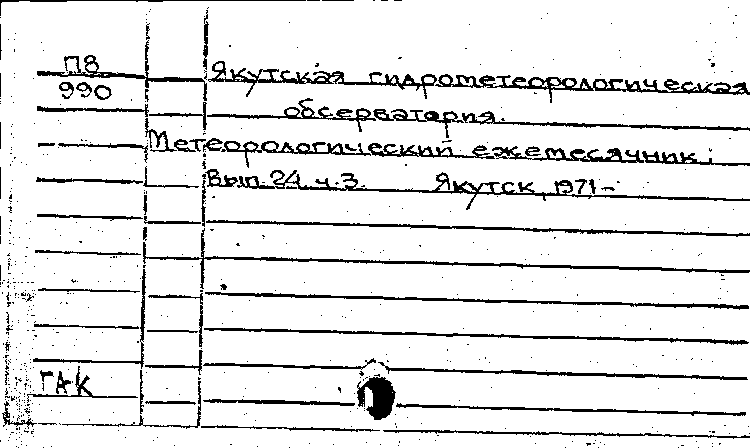 П8
990
Якутская гидрометеорологическая
обсерватория.
Метеорологический ежемесячник:
Вып. 24 ч.3. Якутск, 1971-
ГАК